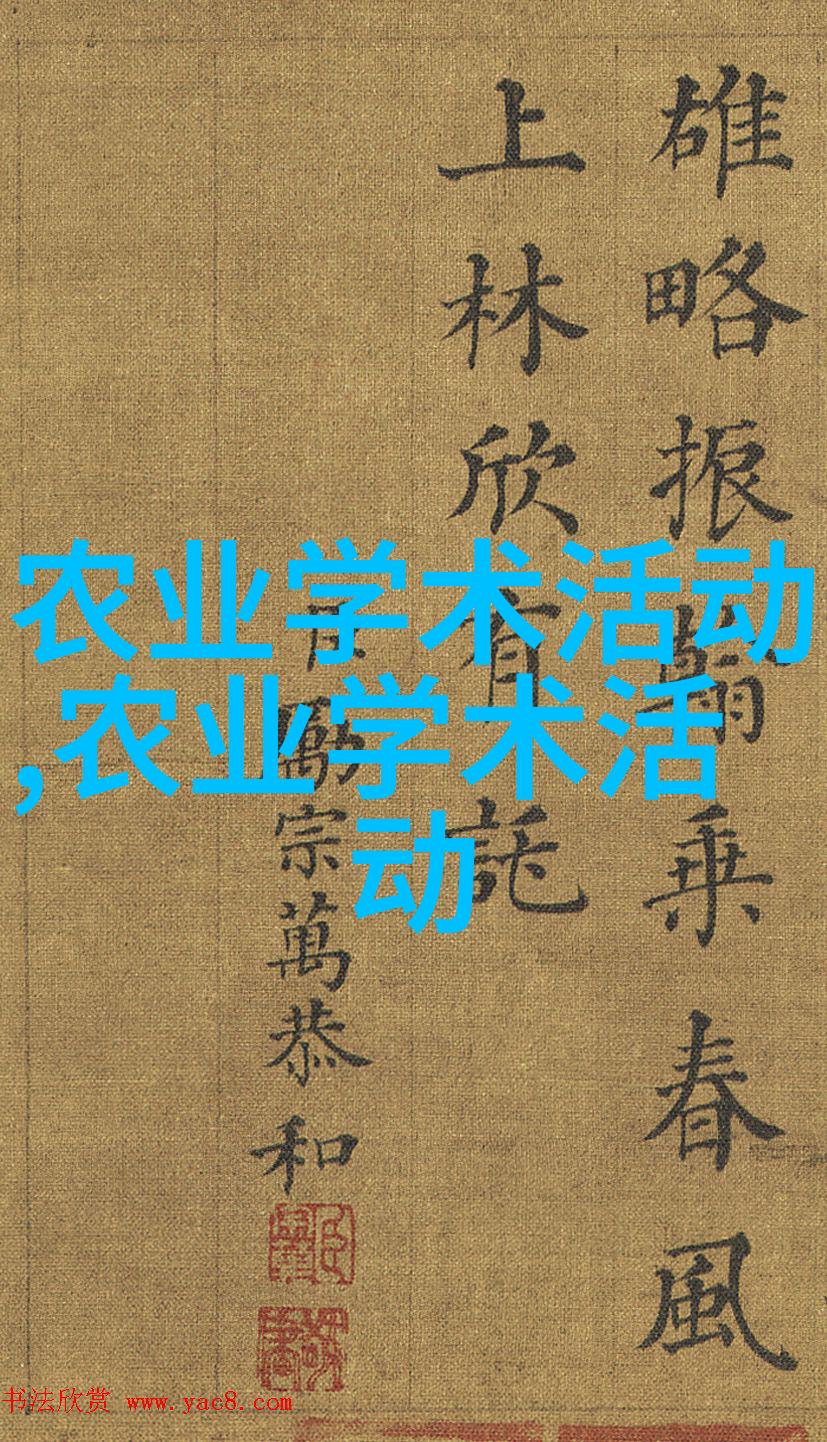 雄略振翩乘春風
上林欣有託
臣勵宗萬恭和
农业学术活动
,农业学术活
动
书法欣赏 www.yac8.com